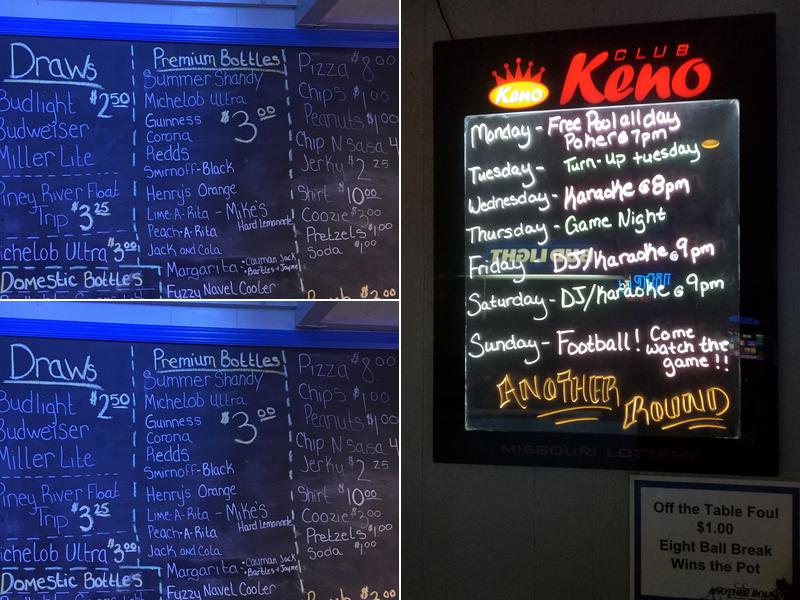 Draws
Budlight $2.50
Budweiser
Miller Lite
Piney River Float
Trip $3.25
Michelob Ultra $3.00
Domestic Bottles
Premium Bottles
Summer Shandy
Michelob Ultra
Guinness $3.00
Corona
Redds
Smirnoff-Black
Henry's Orange
Lime-A-Rita - Mike's
Hard Lemonade
Peach-A-Rita
Jack and Cola
Margarita - Cauman Jack
- Bartles + Jayme
Fuzzy Navel Cooler
Pizza $8.00
Chips $1.00
Peanuts $1.00
Chip N Salsa 4
Jerky $2.25
Shirt $10.00
Coozie $2.00
Pretzels $1.00
Soda $1.00
Draws
Budlight $2.50
Budweiser
Miller Lite
Piney River Float
Trip $3.25
Michelob Ultra $3.00
Domestic Bottles
Premium Bottles
Summer Shandy
Michelob Ultra
Guinness $3.00
Corona
Redds
Smirnoff-Black
Henry's Orange
Lime-A-Rita - Mike's
Hard Lemonade
Peach-A-Rita
Jack and Cola
Margarita - Cauman Jack
- Bartles + Jayme
Fuzzy Navel Cooler
Pizza $8.00
Chips $1.00
Peanuts $1.00
Chip N Salsa 4
Jerky $2.25
Shirt $10.00
Coozie $2.00
Pretzels $1.00
Soda $1.00
CLUB
Keno Keno
Monday - Free Pool all day
Poker @ 7pm
Tuesday - Turn-up tuesday
Wednesday - Karaoke @ 8pm
Thursday - Game Night
Friday - DJ/Karaoke @ 9pm
Saturday - DJ/Karaoke @ 9pm
Sunday - Football! Come
watch the
game!!
ANOTHER ROUND
MISSOURI LOTTERY
Off the Table Foul
$1.00
Eight Ball Break
Wins the Pot
ANOTHER ROUND